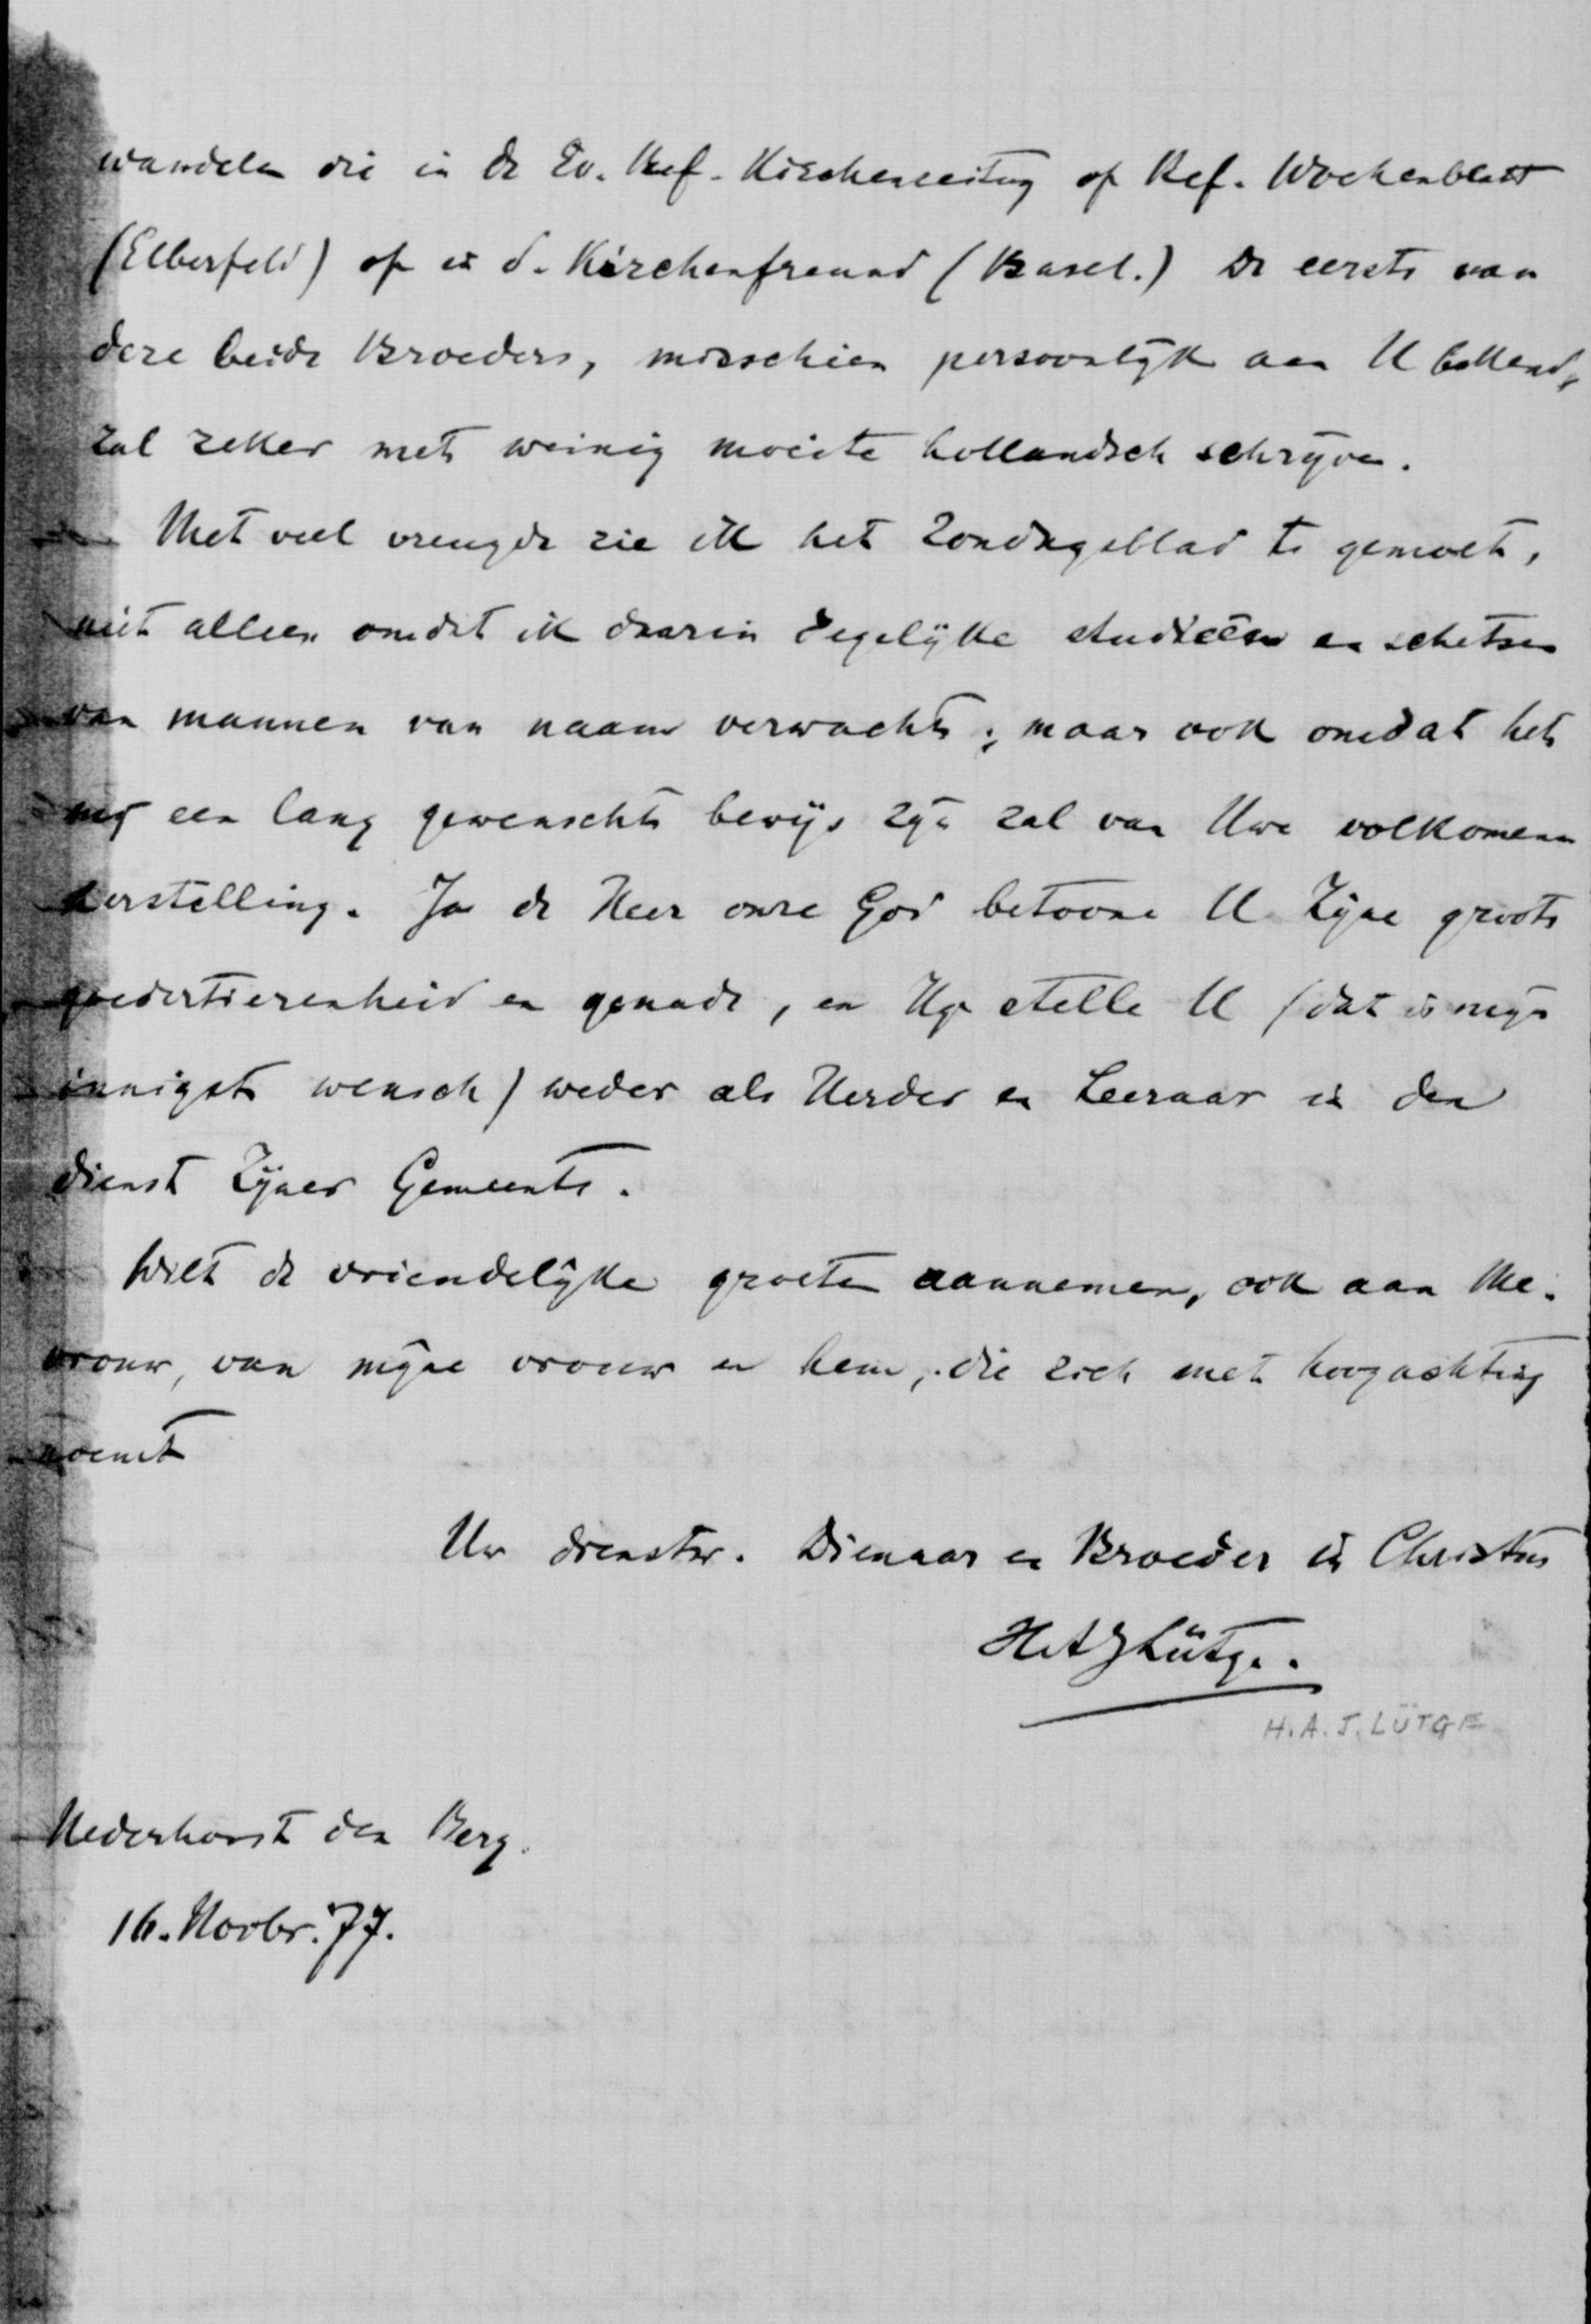 wandelen die in de Ev. Ref. Kirchenzeitung of Ref. Wochenblatt
(Elberfeld) of in d. Kirchenfreund (Basel.) De eerste van
deze beide Broeders, misschien persoonlijk aan U bekend,
zal zeker met weinig moeite hollandsch schrijven.
Met veel vreugde zie ik het Zondagsblad te gemoet,
niet alleen omdat ik daarin degelijke studieën en schetsen
van mannen van naam verwacht; maar ook omdat het
mij een lang gewenscht bewijs zijn zal van Uwe volkomene
herstelling. Ja de Heer onze God betoone U Zijne groote
goedertierenheid en genade, en Hij stelle U (dat is mijn
innigste wensch) weder als Herder en Leeraar in den
dienst Zijner Gemeente.
Wilt de vriendelijke groeten aannemen, ook aan Me-
vrouw, van mijne vrouw en hem, die zich met hoogachting
noemt
Uw dienstw. Dienaar en Broeder in Christus
HAJLütge.
H.A.J. LÜTGE
Nederhorst den Berg.
16. Novbr. 77.